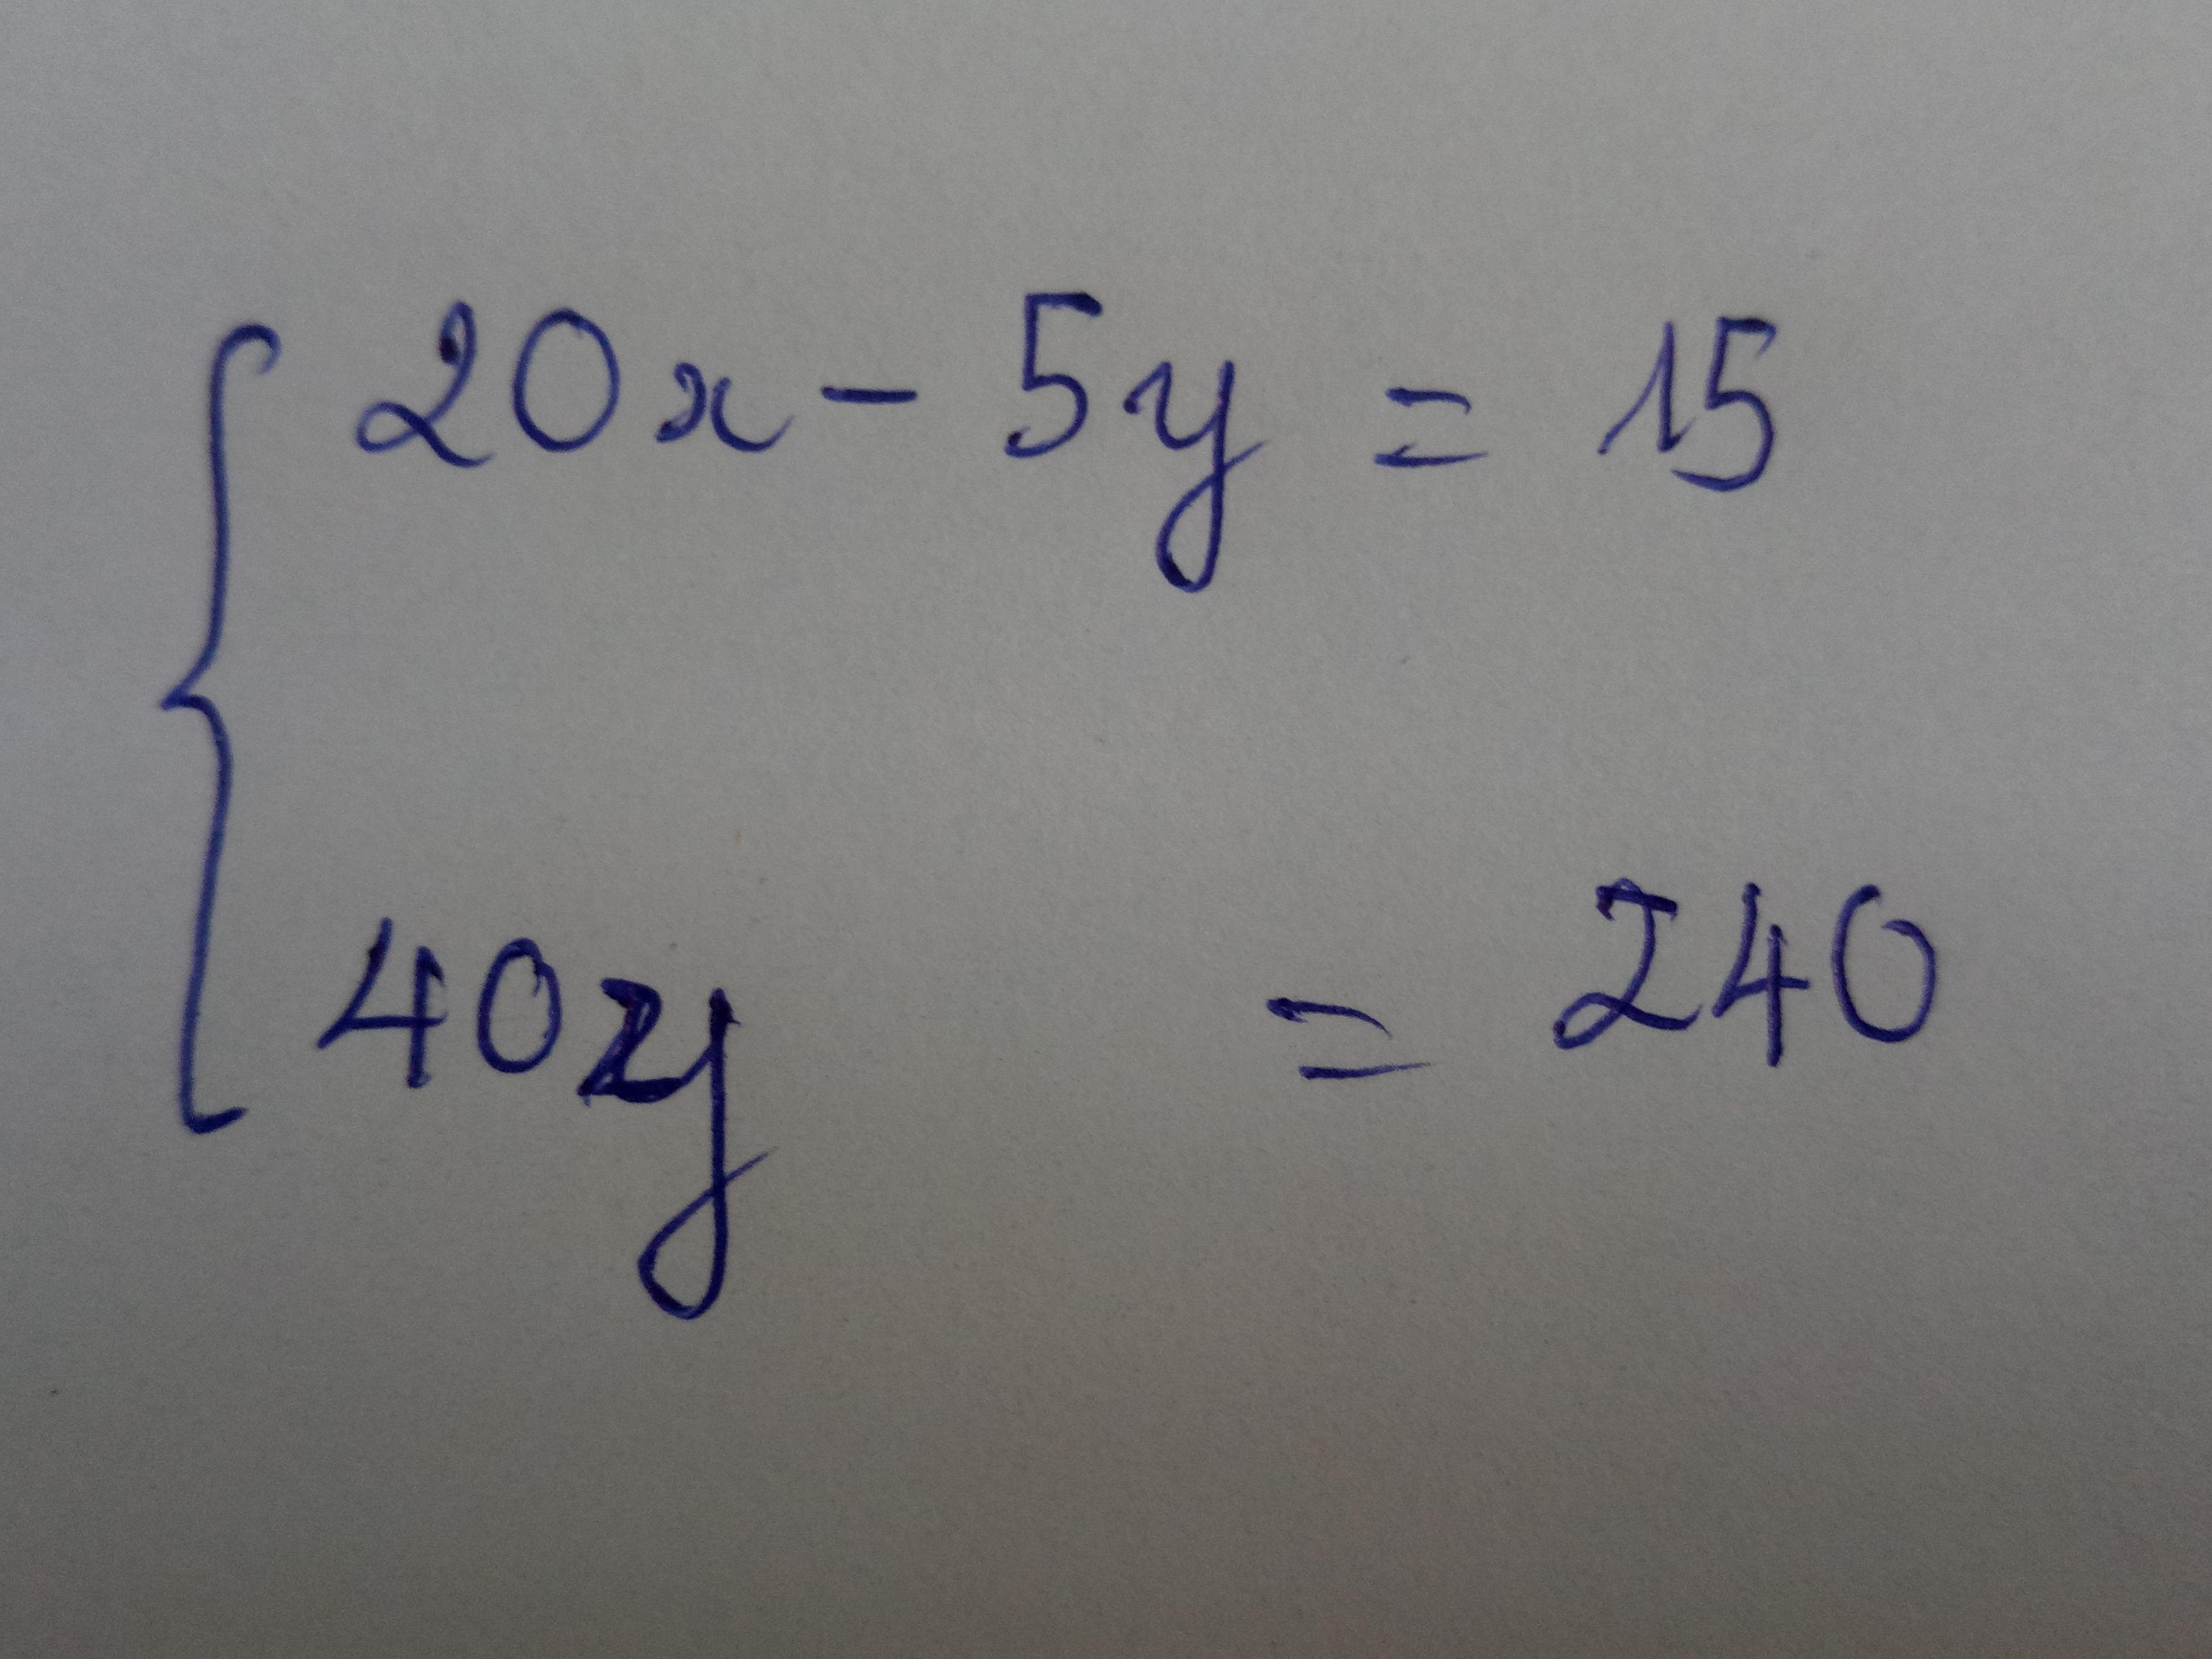 20x - 5y = 15
40y = 240